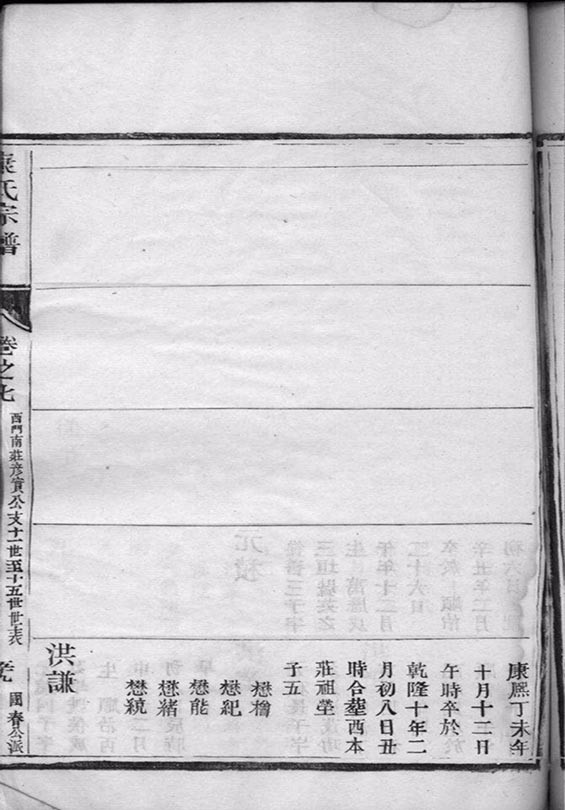 康熙丁未年
十月十二日
午時卒於
乾隆十年二
月初八日丑
時合塟西本
莊祖塋
子五
懋檜
懋紀
懋能
懋緒
懋繞
洪謙
康氏宗譜
卷之七
西門南莊彦實公支十一世至十五世世表
國春公派